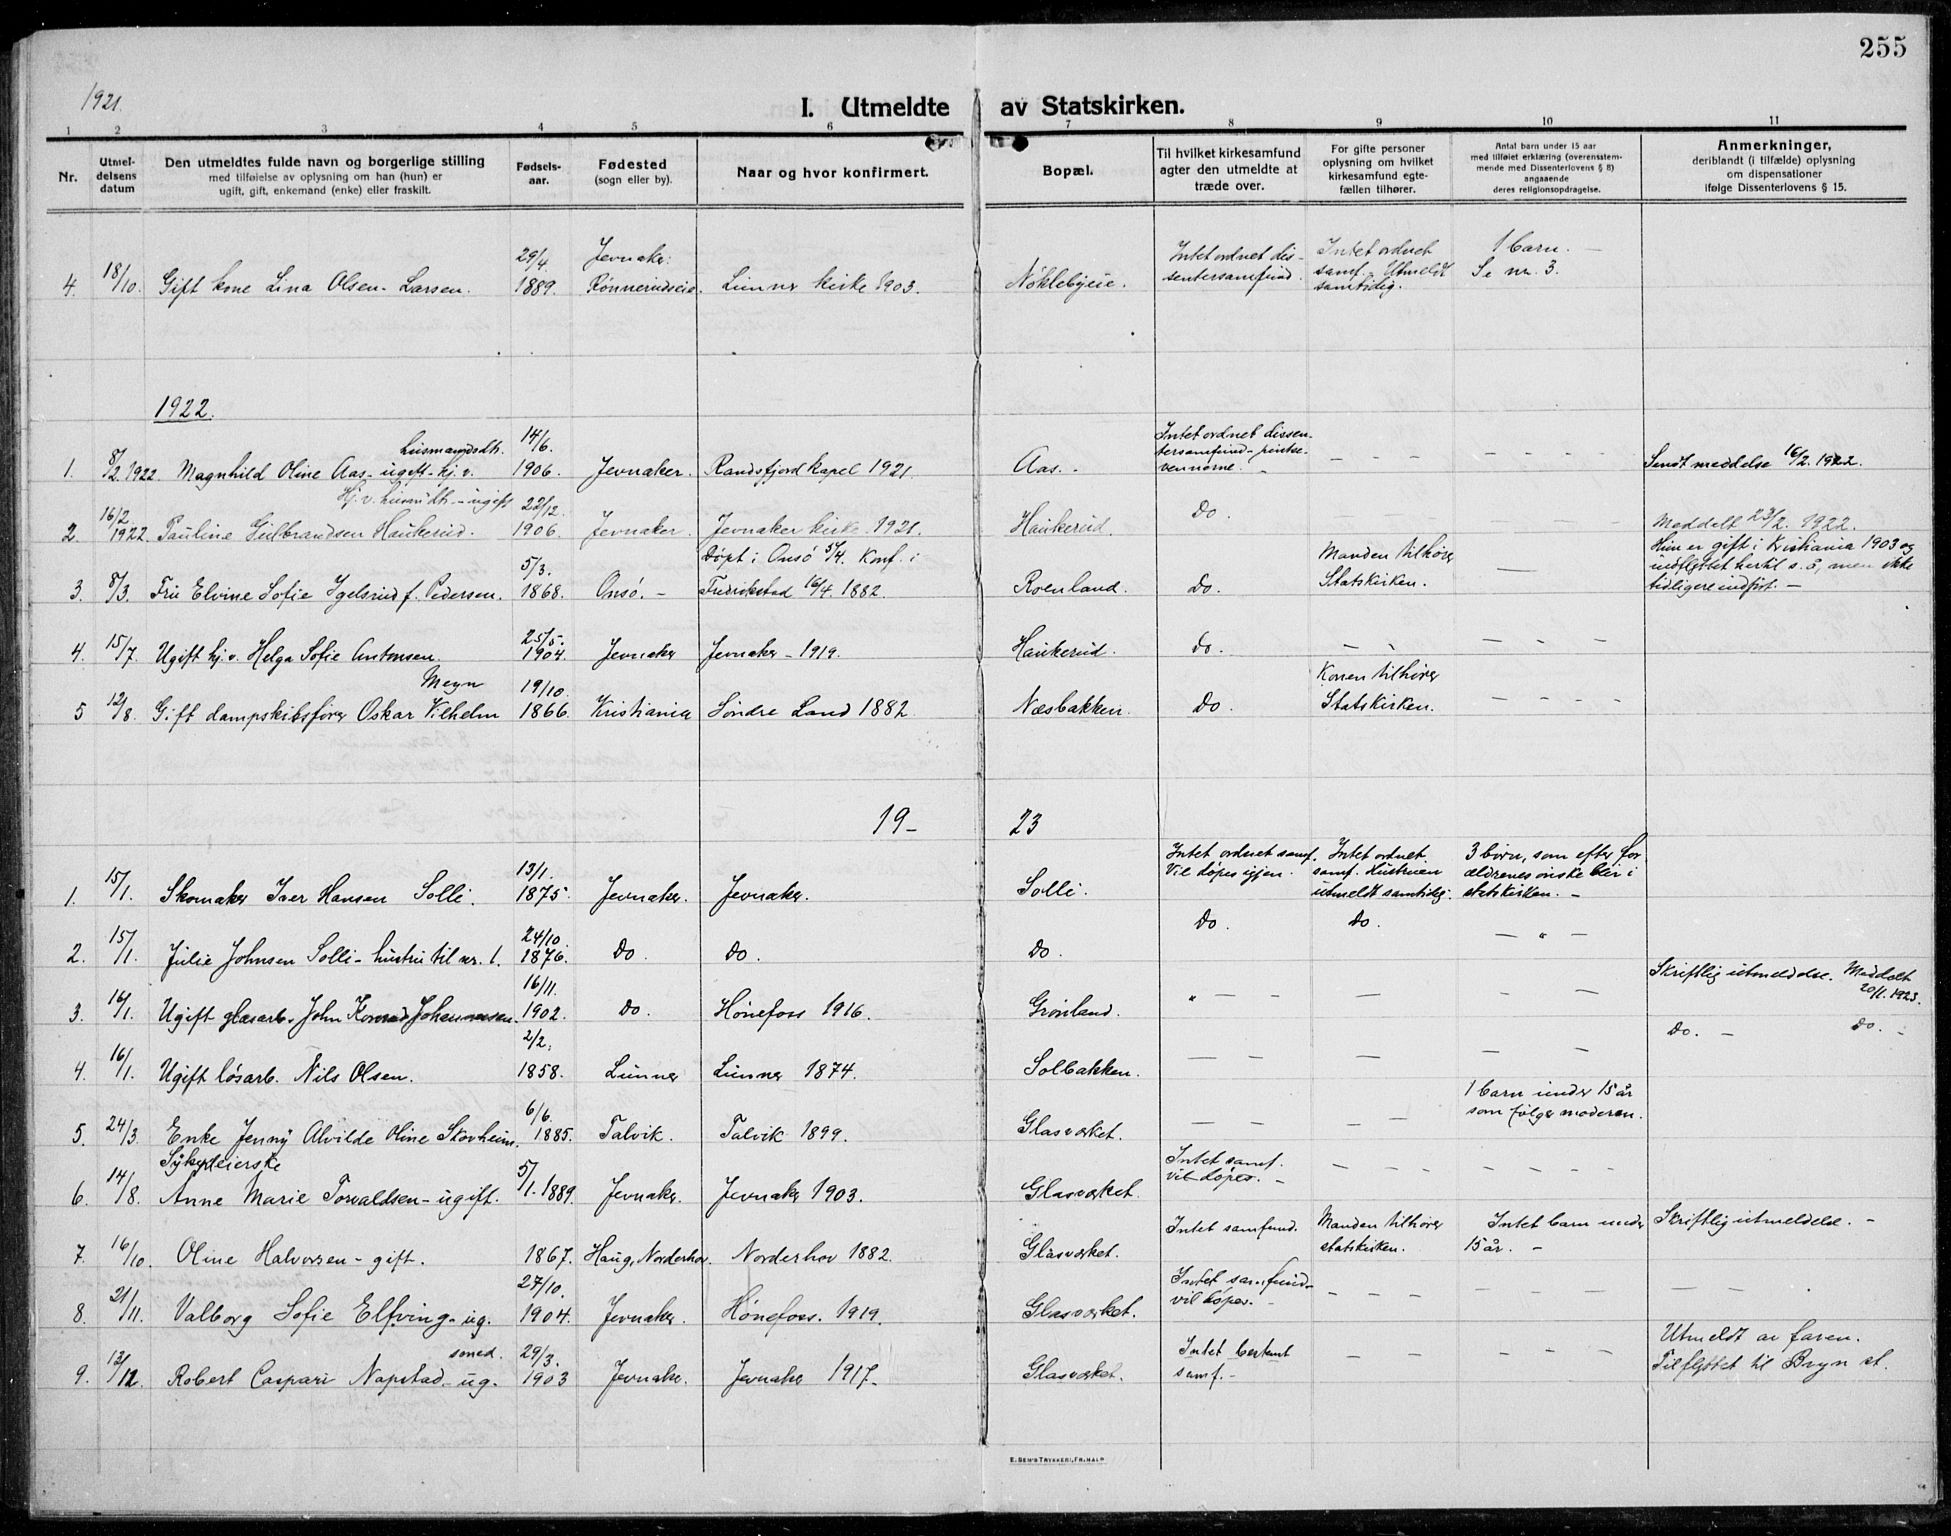 255
1921.
I. Utmeldte av Statskirken.
1 2 3 4 5 6 7 8 9 10 11
Nr.
Utmel-
delsens
datum
Den utmeldtes fulde navn og borgerlige stilling
med tilføielse av oplysning om han (hun) er
ugift, gift, enkemand (enke) eller fraskilt.
Fødsels-
aar.
Fødested
(sogn eller by).
Naar og hvor konfirmert.
Bopæl.
Til hvilket kirkesamfund
agter den utmeldte at
træde over.
For gifte personer
oplysning om hvilket
kirkesamfund egte-
fællen tilhører.
Antal barn under 15 aar
med tilføiet erklæring (overensstem-
mende med Dissenterlovens § 8)
angaaende
deres religionsopdragelse.
Anmerkninger,
deriblandt (i tilfælde) oplysning
om dispensationer
ifølge Dissenterlovens § 15.
4. 18/10. Gift kone Lina Olsen - Larsen.
29/4
1889.
Jevnaker:
Rönnerudseie.
Lunner kirke 1903.
Nöklebyeie.
Intet ordnet dis-
sentersamfund.
Intet ordnet
samf. - Utmeldt
samtidig.
1 barn. -
Se nr. 3.
1922.
1. 8/2. 1922. Magnhild Oline Aas - ugift - hj. v.
husmandsdtr.
14/6.
1906. Jevnaker. Randsfjord kapel 1921.
Aas. -
Intet ordnet dissen-
tersamfund - pintse-
vennerne. -
- - - - - -
Sendt meddelse 16/2. 1922.
2. 16/2 1922. Pauline Gulbrandsen Haukerud.
Hj. v. husm.dtr. - ugift
22/12.
1906. Jevnaker. Jevnaker kirke 1921.
Haukerud.
Do.
Meddelt 23/2. 1922.
3. 8/3. Fru Elvine Sofie Ygelsrud f. Pedersen.
5/3.
1868. Onsö. -
Döpt i Onsö 5/4. Konf. i
Fredrikstad 16/4. 1882.
Roenland. Do.
Manden tilhörer
Statskirken.
-
Hun er gift i Kristiania 1903 og
indflyttet hertil s. å, men ikke
tidligere indfört. -
4. 15/7. Ugift hj. v. Helga Sofie Antonsen.
25/5.
1904. Jevnaker Jevnaker - 1919.
Haukerud. Do. - - - - -
5 12/8. Gift dampskibsförer Oskar Vilhelm
Megn
19/10.
1866. Kristiania Söndre Land 1882.
Næsbakken. Do.
Konen tilhörer
Statskirken.
- - - -
19- 23
1. 15/1. Skomaker Iver Hansen Solli.
13/1.
1875. Jevnaker. Jevnaker.
Solli.
Intet ordnet samf.
Vil döpes igjen.
Intet ordnet
samf. Hustruen
utmeldt samtidig.
3 börn, som efter for-
ældrenes önske blir i
statskirken. -
2. 15/1. Julie Johnsen Solli - hustru til nr. 1.
24/10.
1876. Do. Do.
Do. Do. Do. - " -
3. 16/1. Ugift glasarb. John Konrad Johannesen.
16/11.
1902. Do. Hönefoss 1916.
Grönland. " - - - - -
Skriftlig utmeldelse. Meddelt
20/1. 1923.
4. 16/1. Ugift lösarb. Nils Olsen.
2/2.
1858. Lunner Lunner 1874.
Solbakken. - - - - -
Do. - Do. -
5. 24/3. Enke Jenny Alvilde Oline Skovheim.
6/6.
1885. Talvik. Talvik 1899.
Glasværket. - - - -
1 barn under 15 år
som fölger moderen.
6. 14/8.
Sykepleierske
Anne Marie Torvaldsen - ugift.
5/1. 1889. Jevnaker. Jevnaker 1903.
Glasværket.
Intet samf.
vil döpes. -
- - - - - - - -
7. 16/10. Oline Halvorsen - gift.
1867. Haug, Norderhov. Norderhov 1882.
Glasværket.
Intet samfund.
Manden tilhörer
statskirken.
Intet barn under
15 år. -
Skriftlig utmeldelse. -
8. 21/11. Valborg Sofie Elfving - ug.
27/10.
1904. Jevnaker. Hönefoss. 1919.
Glasværket.
Intet samfund -
vil döpes. -
- - - - - - - - -
9. 13/12. Robert Caspari Napstad - ug.
smed.
29/3.
1903 Jevnaker. Jevnaker 1917.
Glasværket.
Intet bestemt
samf. -
- - - - - -
Utmeldt av faren.
Tilflyttet til Bryn st.
E. SEM'S TRYKKERI, FR.HALD